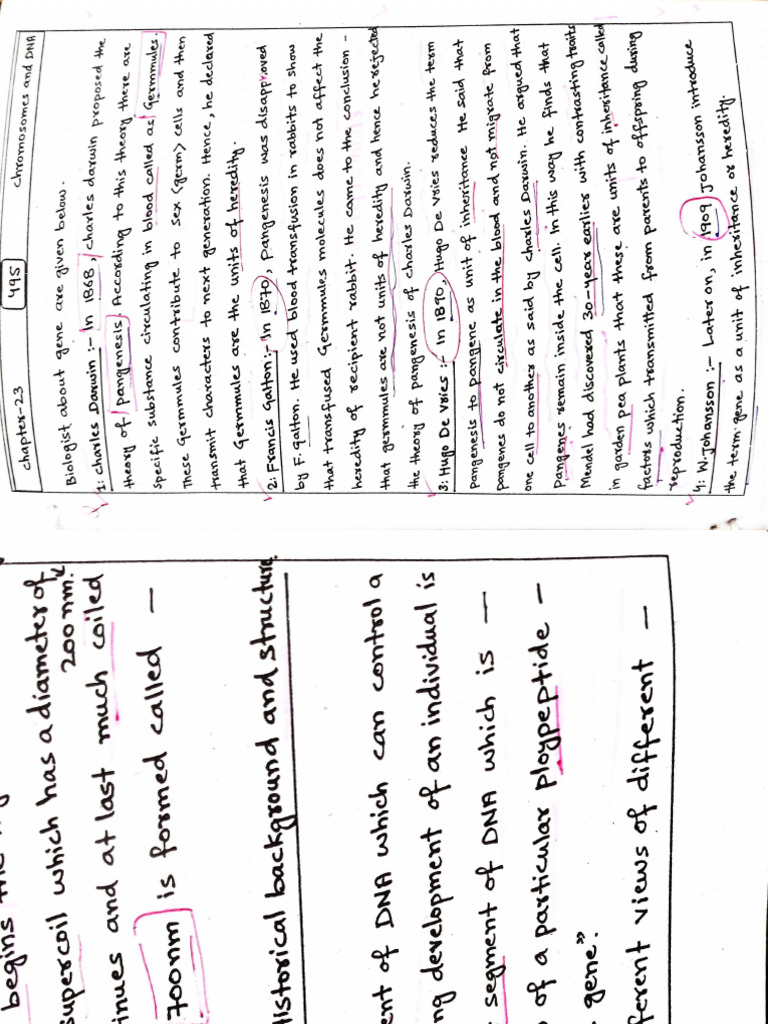 chapter-23 495 chromosomes and DNA
Biologist about gene are given below.
1: charles Darwin :- In 1868, charles darwin proposed the
theory of Pangenesis. According to this theory there are
specific substance circulating in blood called as Germmules.
These Germmules contribute to sex <germ> cells and then
transmit characters to next generation. Hence, he declared
that Germmules are the units of heredity.
2: Francis Galton:- In 1870, pangenesis was disapproved
by F. galton. He used blood transfusion in rabbits to show
that transfused Germmules molecules does not affect the
heredity of recipient rabbit. He came to the conclusion -
that germmules are not units of heredity and hence he rejected
the theory of pangenesis of charles Darwin.
3: Hugo De vries :- In 1890, Hugo De vries reduces the term
pangenesis to pangene as unit of inheritance He said that
pangenes do not circulate in the blood and not migrate from
one cell to another as said by charles Darwin. He argued that
Pangenes remain inside the cell. In this way he finds that
Mendel had discovered 30-year earlier with contrasting traits
in garden pea plants that these are units of inheritance called
factors which transmitted from parents to offspring during
reproduction.
4: W.Johansson :- Later on, in 1909 Johansson introduce
the term gene as a unit of inheritance or heredity.
begins
supercoil which has a diameter of
200nm.
inues and at last much coiled
700nm is formed called -
Historical background and structure
ent of DNA which can control a
ng development of an individual is
segment of DNA which is -
of a particular ploypeptide -
gene."
ferent views of different -